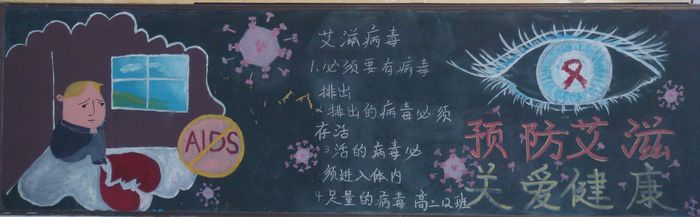 AIDS
艾滋病毒
1.必须要有病毒
排出
2.排出的病毒必须
存活
3活的病毒必
须进入体内
4足量的病毒 高二12班
预防艾滋
关爱健康